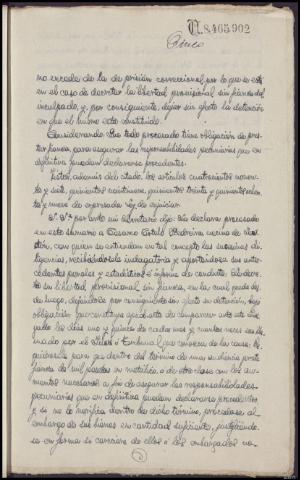 N.8.465.902
Cinco
no excede de la de prisión correccional, por lo que se está
en el caso de decretar la libertad provisional sin fianza del
inculpado, y, por consiguiente, dejar sin efecto la detención
en que el mismo está constituido.
Considerando: Que todo procesado tiene obligación de pres-
tar fianza para asegurar las responsabilidades pecuniarias que en
definitiva puedan declararse procedentes.
Vistos, además del citado, los artículos cuatrocientos noven-
ta y siete, quinientos veintinueve, quinientos treinta y quinientos ochen-
ta y nueve de expresada Ley de enjuiciar
S.S. por ante mi Secretario dijo: Se declara procesado
en este sumario a Cesareo Estuló vecino de
con quien se entiendan en tal concepto las sucesivas di-
ligencias, recibiéndosele indagatoria y aportándose sus ante-
cedentes penales y estadísticos e informe de conducta. Se decre-
ta su libertad provisional sin fianza, en la cual quede des-
de luego, dejándose por consiguiente sin efecto su detención, bajo
obligación que constituya apud acta de comparecer ante este Juz-
gado los días uno y quince de cada mes y cuantas veces sea lla-
mado por el Juez o Tribunal que conozca de la causa. Re-
quiérasele para que dentro del término de una audiencia preste
fianza de mil pesetas en metálico, o de otra clase con los au-
mentos necesarios a fin de asegurar las responsabilidades
pecuniarias que en definitiva puedan declararse procedentes
y si no lo verifica dentro de dicho término, procédase al
embargo de sus bienes en cantidad suficiente, justificándo-
se en forma si careciere de ellos o los embargados no